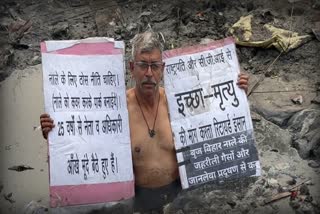 नाले के लिए ठोस नीति चाहिए
(नाले को सवा करके पार्क बनाईये)
25 वर्षों से नेता व अधिकारी
आँखें मूँदे बैठे हुए हैं.
राष्ट्रपति और सी.जी.आई से
इच्छा-मृत्यु
की मांग करता रिटायर्ड इंसान
बृज विहार नाले की
जहरीली गैसों और
जानलेवा प्रदूषण से